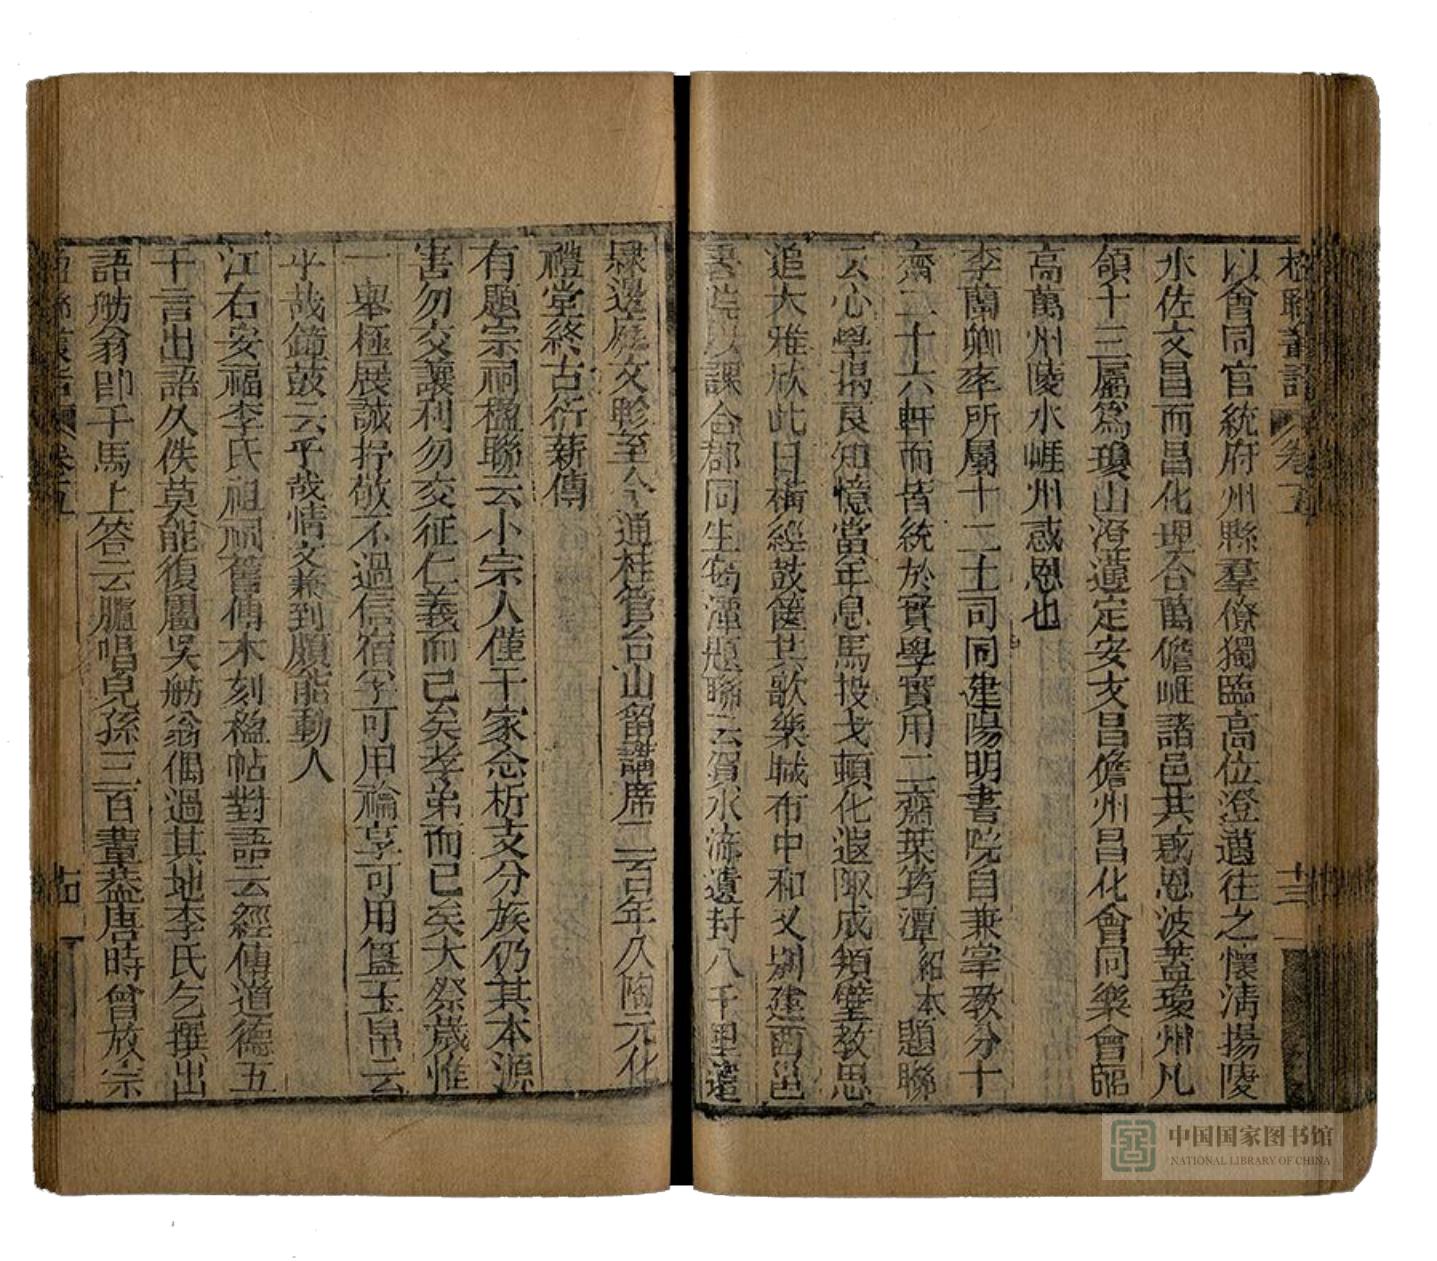 楹聯叢話 卷五 十三
以會同官統府州縣羣僚獨臨高位澄邁往之懷淸揚陵
水佐文昌而昌化理合萬儋崖諸邑共感恩波蓋瓊州凡
領十三屬爲瓊山澄邁定安文昌儋州昌化會同樂會臨
高萬州陵水崖州感恩也
李蘭卿率所屬十二土司同建陽明書院自兼掌教分十
齋二十六軒而皆統於實學實用二齋葉筠潭紹本題聯
云心學揭良知憶當年息馬投戈頓化遐陬成頖壁教思
追大雅欣此日橫經鼓篋共歌樂職布中和又別建西邕
書院以課合郡同生筠潭題聯云賀水海遺封八千里遠
隸邊庭文畛至今通桂管台山留講席二百年久陶元化
禮堂終古衍薪傳
有題宗祠楹聯云小宗人僅千家念析支分族仍其本源
害勿交讓利勿交征仁義而已矣孝弟而已矣大祭歲惟
一舉極展誠抒敬不過信宿孚可用禴享可用簋玉帛云
乎哉鐘鼓云乎哉情文兼到頗能動人
江右安福李氏祖祠舊傳木刻楹帖對語云經傳道德五
千言出語久佚莫能復屬吳舫翁偶過其地李氏乞撰出
語舫翁卽于馬上答云臚唱兒孫三百輩葢唐時曾放宗
楹聯叢話 卷五 十四
中国国家图书馆
NATIONAL LIBRARY OF CHINA